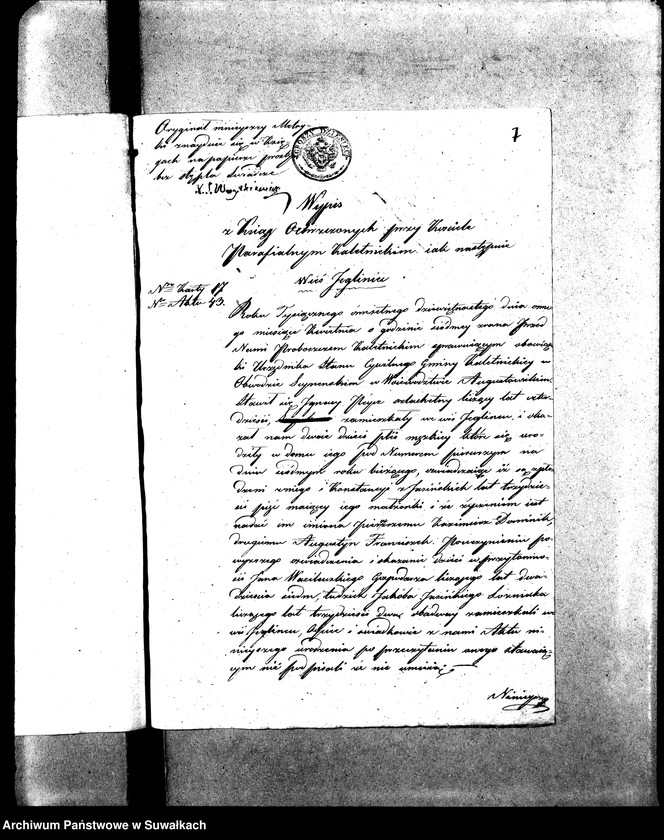 Oryginał niniejszey Metry-
ki znayduie się w Księ-
gach na papierze prostym
bez stępla świadczę
7
GROSZY DZIESIĘĆ
Wypis
z Ksiąg Otworzonych przy Kościele
Parafialnym Kaletnickim iak następuie
Wieś Jegliniec
Nro Karty 17.
Nro Aktu 43.
Roku Tysiącznego ośmsetnego dziewiętnastego dnia ośme-
go miesiąca Kwietnia o godzinie siódmey zrana Przed
Nami Proboszczem Kaletnickim sprawuiącym obowiąz-
ki Urzędnika Stanu Cywilnego Gminy Kaletnickiey w
Obwodzie Seynenskim w Woiewodztwie Augustowskim.
Stawił się Ignacy szlachetny liczący lat czter-
dzieści, zamieszkały we wsi Jeglincu, i oka-
zał nam dwoie dzieci płci męzkiey które się uro-
dziły w domu iego pod Numerem pierwszym na
dniu siódmym roku bieżącego, oswiadczaiąc iż są spło-
dzeni z niego i Konstancyi z Jasińskich lat trzydzie-
ści pięć maiącey iego małżonki i że życzeniem iest
nadać im imiona pierwszemu Kazimierz Dominik,
drugiemu Augustyn Franciszek. Po uczynieniu po-
wyższego oświadczenia i okazaniu dzieci w przytomno-
ści Jana Wasilewskiego Gospodarza liczącego lat dwa-
dzieścia siedm, tudzież Jakóba Jasińskiego
liczącego lat trzydzieści dwa, obadway zamieszkali we
wsi Jeglincu, Oyciec i świadkowie z nami Aktu ni-
nieyszego urodzenia po przeczytaniu onego stawaią-
cym nie podpisali iż nie umieią;
Nai
Archiwum Państwowe w Suwałkach